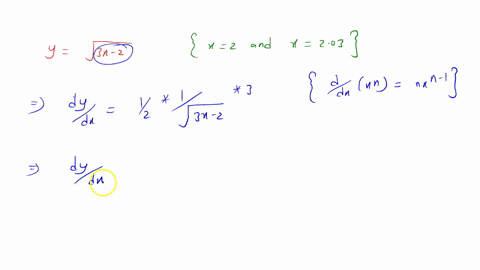 y = √(3x-2) { x=2 and x = 2.03 }
⇒ dy/dx = 1/2 * 1/√(3x-2) * 3 { d/dx (xn) = nx^(n-1) }
⇒ dy/dx